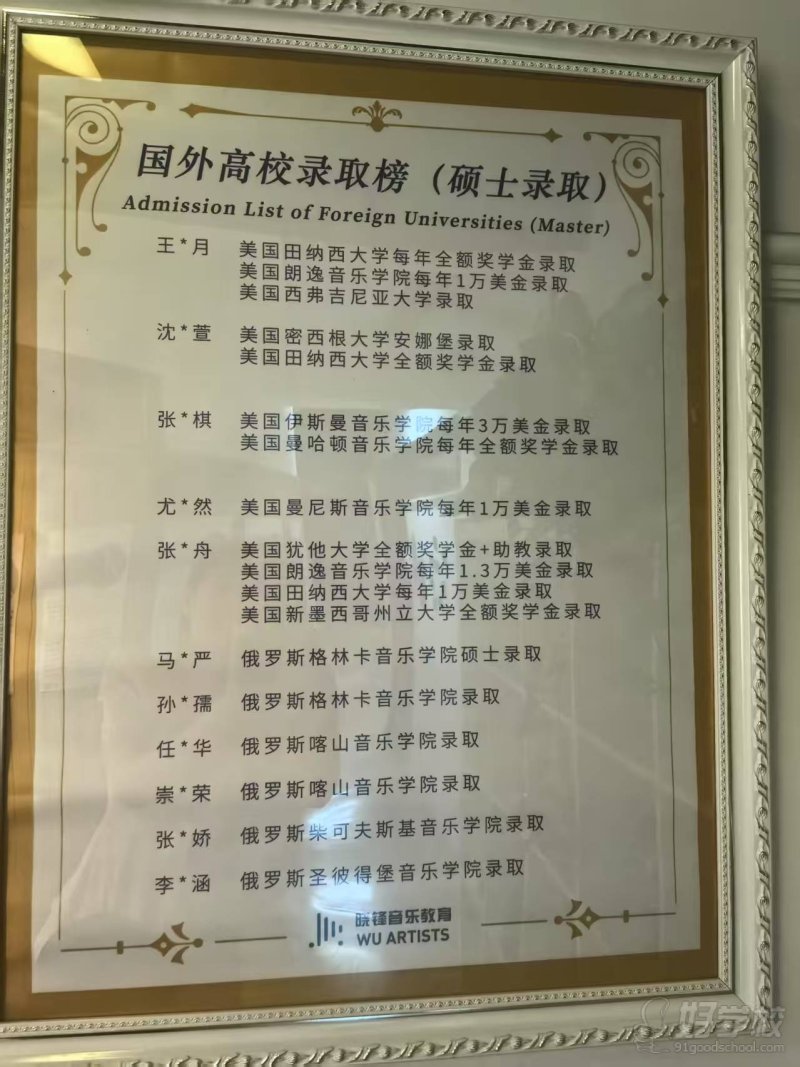 国外高校录取榜（硕士录取）
Admission List of Foreign Universities (Master)
王*月 美国田纳西大学每年全额奖学金录取
美国朗逸音乐学院每年1万美金录取
美国西弗吉尼亚大学录取
沈*萱 美国密西根大学安娜堡录取
美国田纳西大学全额奖学金录取
张*棋 美国伊斯曼音乐学院每年3万美金录取
美国曼哈顿音乐学院每年全额奖学金录取
尤*然 美国曼尼斯音乐学院每年1万美金录取
张*舟 美国犹他大学全额奖学金+助教录取
美国朗逸音乐学院每年1.3万美金录取
美国田纳西大学每年1万美金录取
美国新墨西哥州立大学全额奖学金录取
马*严 俄罗斯格林卡音乐学院硕士录取
孙*孺 俄罗斯格林卡音乐学院录取
任*华 俄罗斯喀山音乐学院录取
崇*荣 俄罗斯喀山音乐学院录取
张*娇 俄罗斯柴可夫斯基音乐学院录取
李*涵 俄罗斯圣彼得堡音乐学院录取
晓锋音乐教育
WU ARTISTS
好学校
91goodschool.com